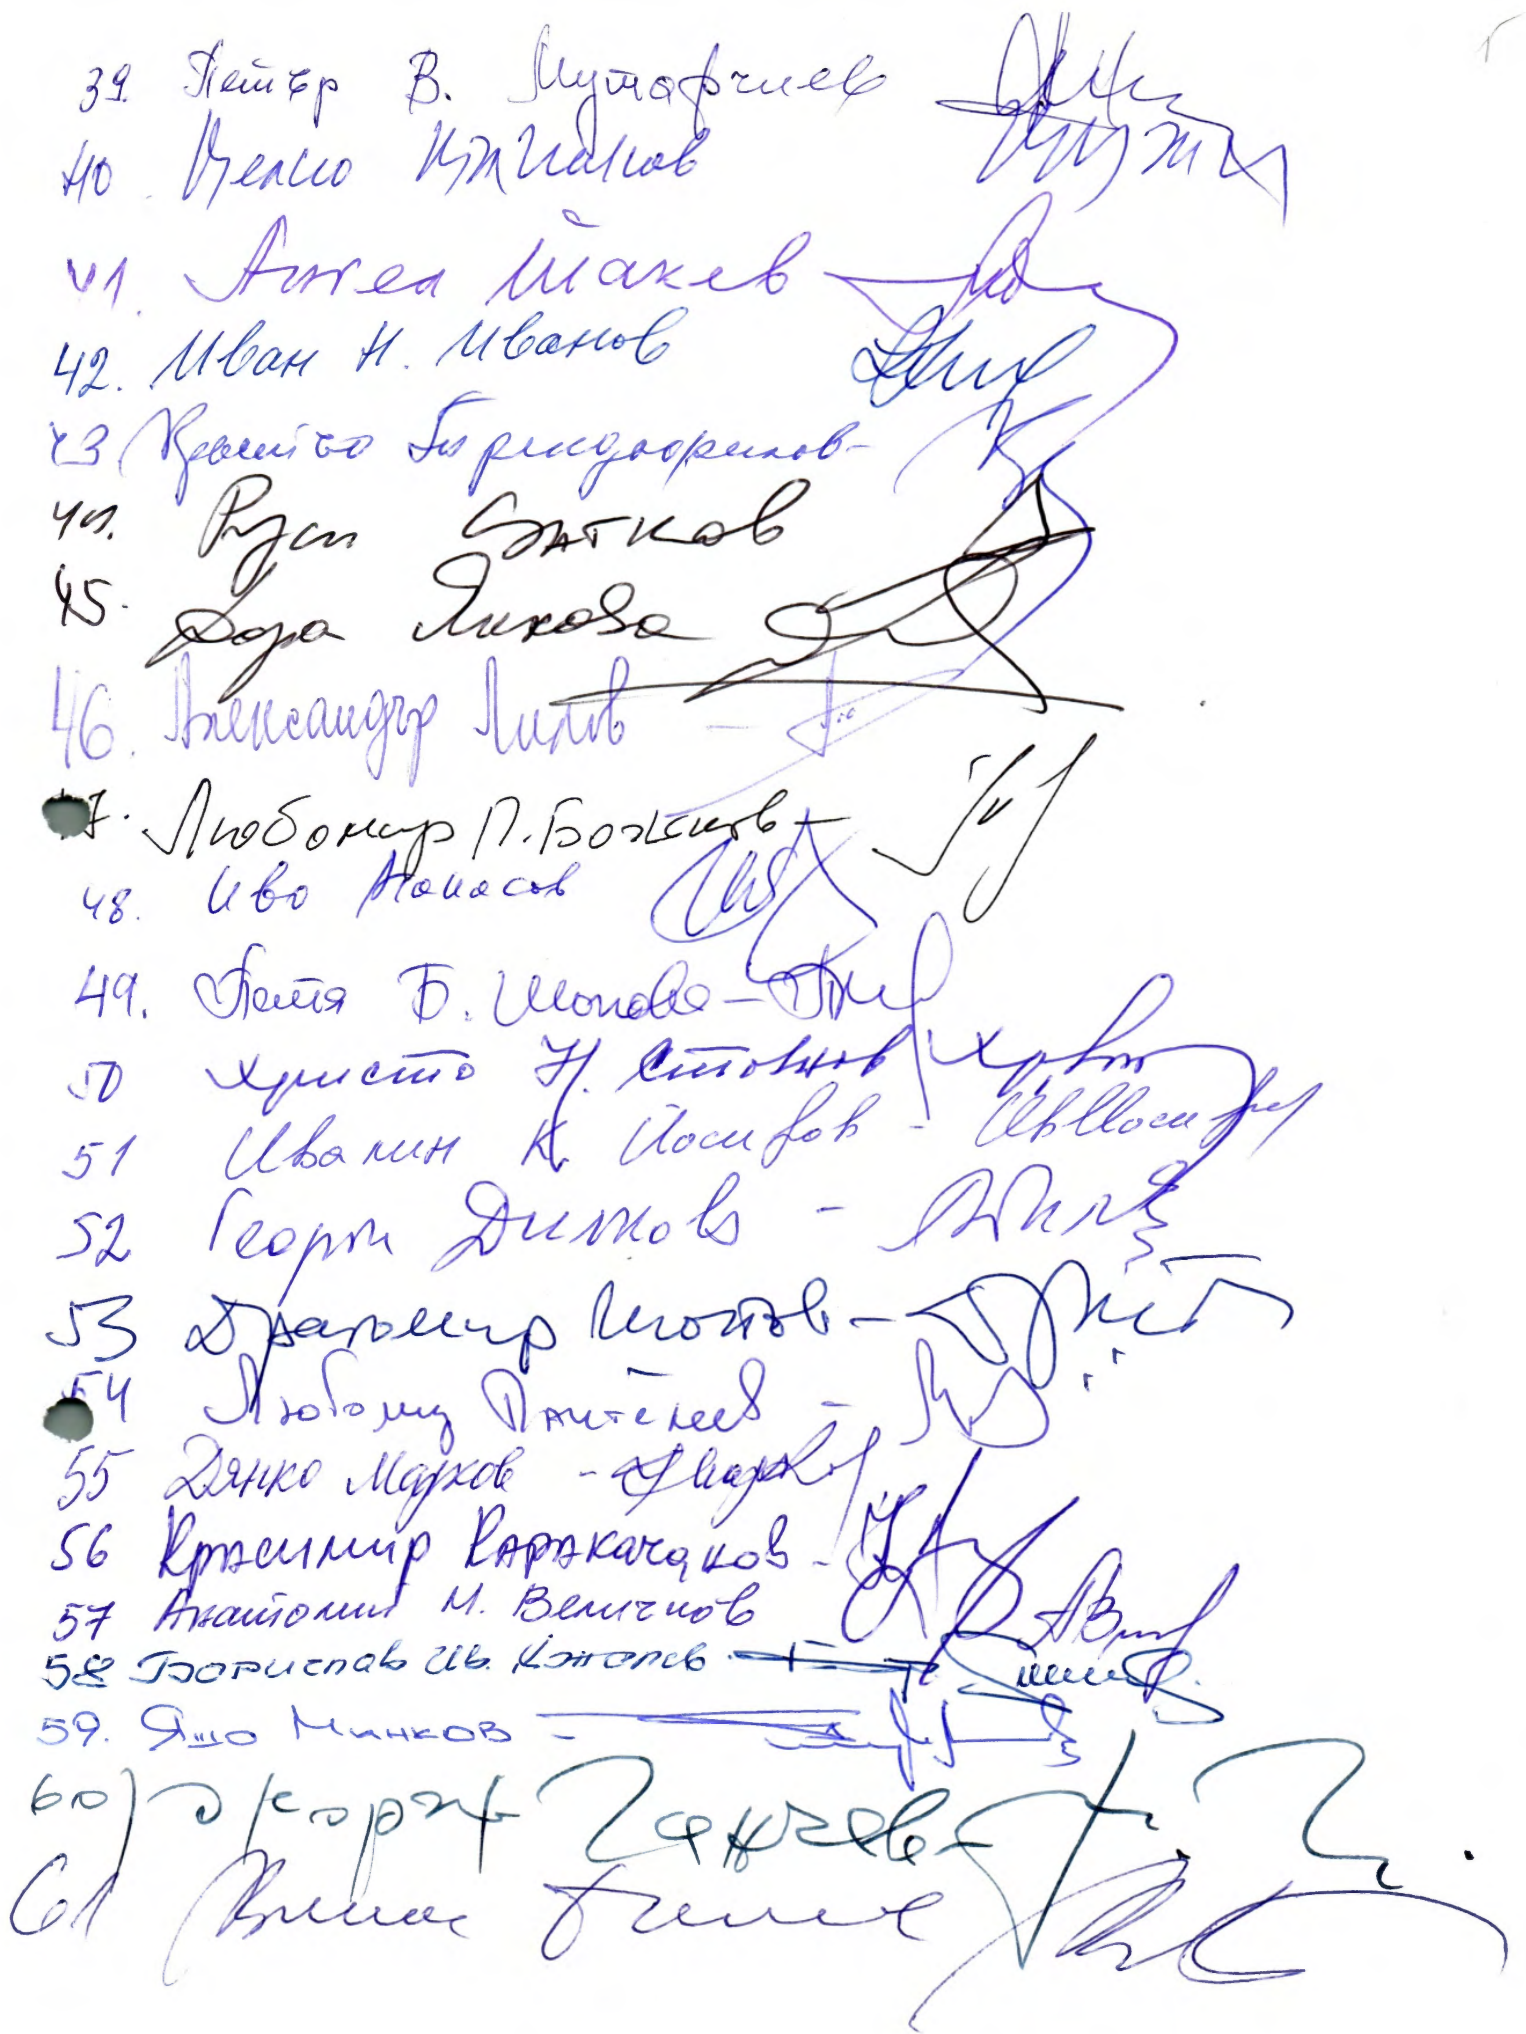 39. Петър В. Мутафчиев
40. Целко
41. Ангел Шакев
42. Иван Н. Иванов
43
44. Руси Статков
45. Дора Янкова
46. Александър Лилов
7. Любомир П. Божков
48. Иво Атанасов
49. Петя Б. Шопова
50 Христо Н. Стоянов
51 Ивалин К. Йосифов
52 Георги Димков
53 Драгомир Шопов
54 Любомир Пантелеев
55 Дянко Марков
56 Красимир Каракачанов
57 Анатолий М. Величков
58 Борислав Ив.
59. Яшо Минков
60) Жорж Ганчев
61